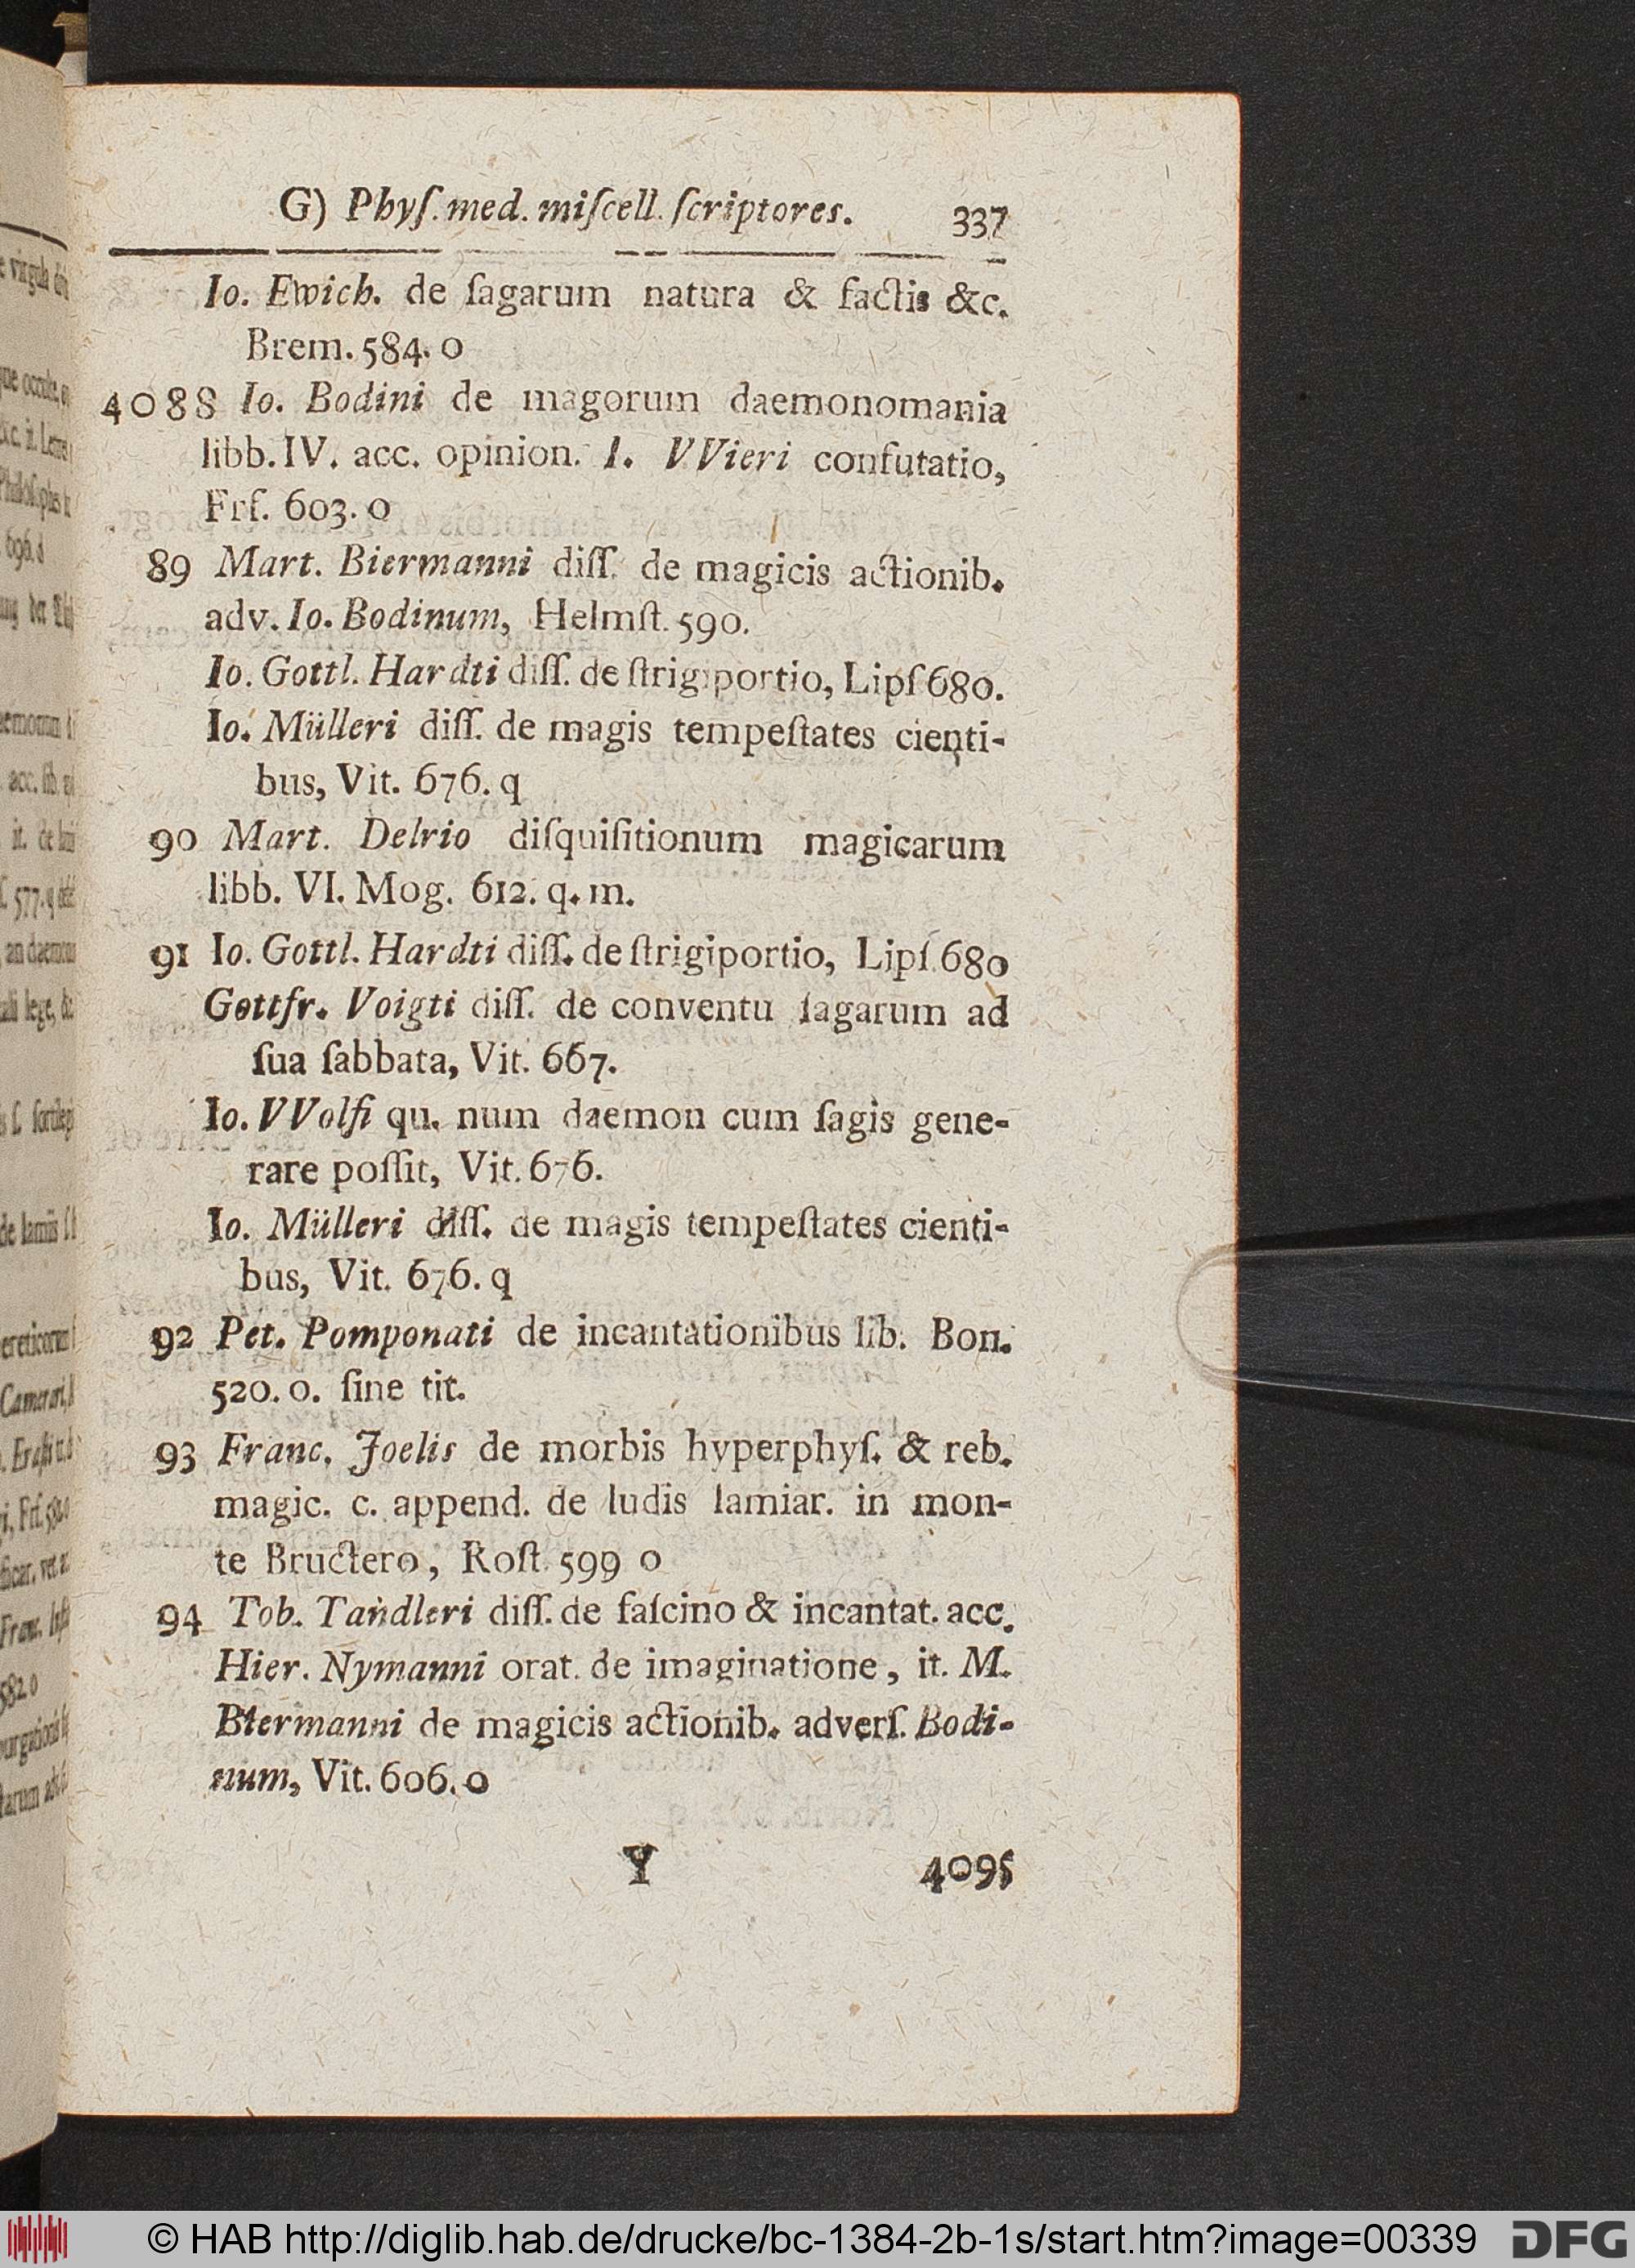 G) Phyſ. med. miſcell. ſcriptores. 337
Io. Ewich. de ſagarum natura & factis &c.
Brem. 584. o
4088 Io. Bodini de magorum daemonomania
libb. IV. acc. opinion. I. VVieri confutatio,
Frf. 603. o
89 Mart. Biermanni diſſ. de magicis actionib.
adv. Io. Bodinum, Helmſt. 590.
Io. Gottl. Hardti diſſ. de ſtrigiportio, Lipſ 680.
Io. Mülleri diſſ. de magis tempeſtates cienti-
bus, Vit. 676. q
90 Mart. Delrio diſquiſitionum magicarum
libb. VI. Mog. 612. q. m.
91 Io. Gottl. Hardti diſſ. de ſtrigiportio, Lipſ. 680
Gottfr. Voigti diſſ. de conventu ſagarum ad
ſua ſabbata, Vit. 667.
Io. VVolfi qu. num daemon cum ſagis gene-
rare poſſit, Vit. 676.
Io. Mülleri diſſ. de magis tempeſtates cienti-
bus, Vit. 676. q
92 Pet. Pomponati de incantationibus lib. Bon.
520. o. ſine tit.
93 Franc. Joelis de morbis hyperphyſ. & reb.
magic. c. append. de ludis lamiar. in mon-
te Bructero, Roſt. 599 o
94 Tob. Tandleri diſſ. de faſcino & incantat. acc.
Hier. Nymanni orat. de imaginatione, it. M.
Biermanni de magicis actionib. adverſ. Bodi-
num, Vit. 606. o
Y 4095
© HAB http://diglib.hab.de/drucke/bc-1384-2b-1s/start.htm?image=00339 DFG